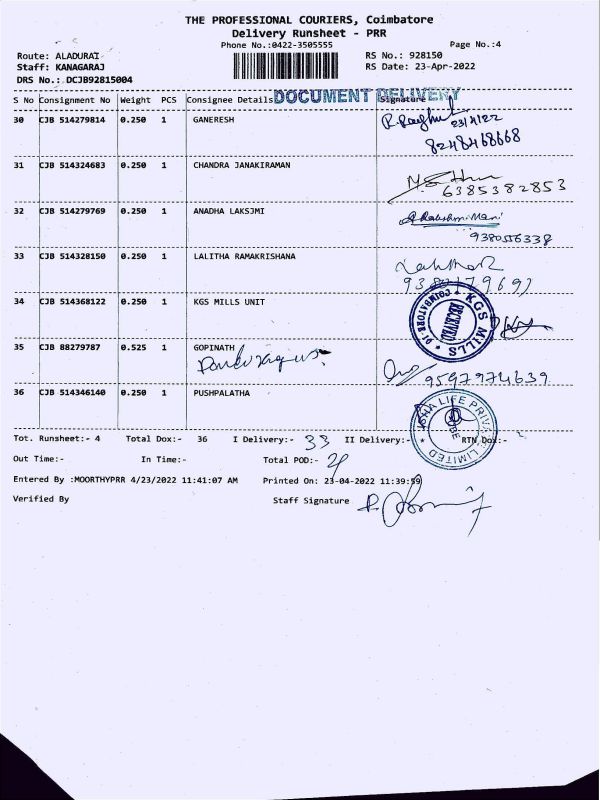 THE PROFESSIONAL COURIERS, Coimbatore
Delivery Runsheet - PRR
Phone No.:0422-3505555
Page No.:4
Route: ALADURAI
RS No.: 928150
Staff: KANAGARAJ
RS Date: 23-Apr-2022
DRS No.: DCJB92815004
DOCUMENT DELIVERY
S No Consignment No Weight PCS Consignee Details Signature
30 CJB 514279814 0.250 1 GANERESH
23/4/22
8248468668
31 CJB 514324683 0.250 1 CHANDRA JANAKIRAMAN
6385382853
32 CJB 514279769 0.250 1 ANADHA LAKSJMI
9380556338
33 CJB 514328150 0.250 1 LALITHA RAMAKRISHANA
34 CJB 514368122 0.250 1 KGS MILLS UNIT
KGS MILLS
COIMBATORE
RECEIVED
35 CJB 88279787 0.525 1 GOPINATH
9597974639
36 CJB 514346140 0.250 1 PUSHPALATHA
ISHA LIFE PRIVATE LIMITED
CBE
Tot. Runsheet:- 4 Total Dox:- 36 I Delivery:- 33 II Delivery:- RTN Dox:-
Out Time:- In Time:- Total POD:-
Entered By :MOORTHYPRR 4/23/2022 11:41:07 AM Printed On: 23-04-2022 11:39:59
Verified By Staff Signature